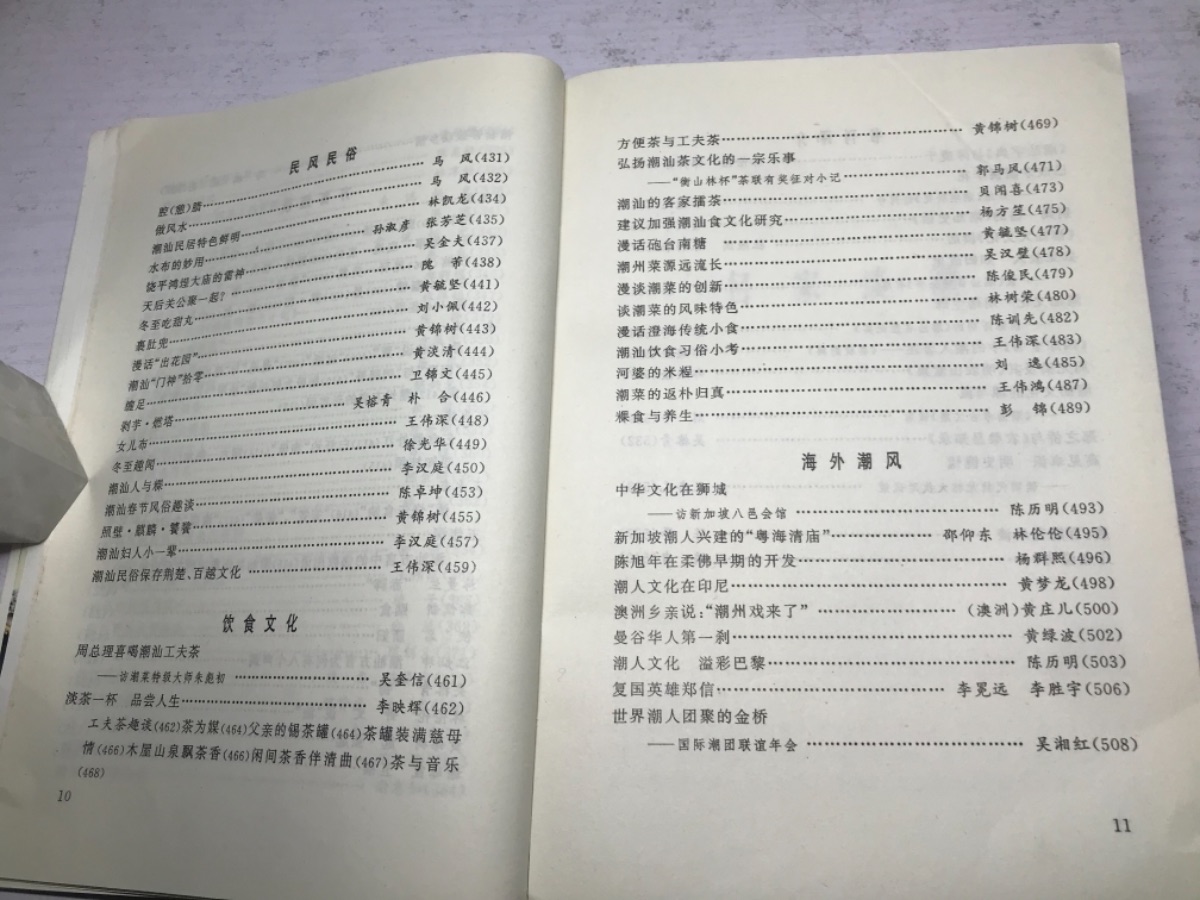 民风民俗
腔(憨)腊……马 风(431)
做风水……马 风(432)
潮汕民居特色鲜明……林凯龙(434)
水布的妙用……孙淑彦 张芳芝(435)
饶平鸿埕大庙的雷神……吴金夫(437)
天后关公聚一起?……隗 芾(438)
冬至吃甜丸……黄毓坚(441)
裹肚兜……刘小佩(442)
漫话“出花园”……黄锦树(443)
潮汕“门神”拾零……黄淡清(444)
缠足……卫锦文(445)
剥芋·燃塔……吴榕青 朴 合(446)
女儿布……王伟深(448)
冬至趣闻……徐光华(449)
潮汕人与粿……李汉庭(450)
潮汕春节风俗趣谈……陈卓坤(453)
照壁·麒麟·饕餮……黄锦树(455)
潮汕妇人小一辈……李汉庭(457)
潮汕民俗保存荆楚、百越文化……王伟深(459)
饮食文化
周总理喜喝潮汕工夫茶
——访潮菜特级大师朱彪初……吴奎信(461)
淡茶一杯 品尝人生……李映辉(462)
工夫茶趣谈(462)茶为媒(464)父亲的锡茶罐(464)茶罐装满慈母
情(466)木屋山泉飘茶香(466)闲间茶香伴清曲(467)茶与音乐
(468)
10
方便茶与工夫茶……黄锦树(469)
弘扬潮汕茶文化的一宗乐事
——“衡山林杯”茶联有奖征对小记……郭马风(471)
潮汕的客家擂茶……贝闻喜(473)
建议加强潮汕食文化研究……杨方笙(475)
漫话砲台南糖……黄毓坚(477)
潮州菜源远流长……吴汉壁(478)
漫谈潮菜的创新……陈俊民(479)
谈潮菜的风味特色……林树荣(480)
漫话澄海传统小食……陈训先(482)
潮汕饮食习俗小考……王伟深(483)
河婆的米程……刘 逸(485)
潮菜的返朴归真……王伟鸿(487)
粿食与养生……彭 锦(489)
海外潮风
中华文化在狮城
——访新加坡八邑会馆……陈历明(493)
新加坡潮人兴建的“粤海清庙”……邵仰东 林伦伦(495)
陈旭年在柔佛早期的开发……杨群熙(496)
潮人文化在印尼……黄梦龙(498)
澳洲乡亲说:“潮州戏来了”……(澳洲)黄庄儿(500)
曼谷华人第一刹……黄绿波(502)
潮人文化 溢彩巴黎……陈历明(503)
复国英雄郑信……李冕远 李胜宇(506)
世界潮人团聚的金桥
——国际潮团联谊年会……吴湘红(508)
11